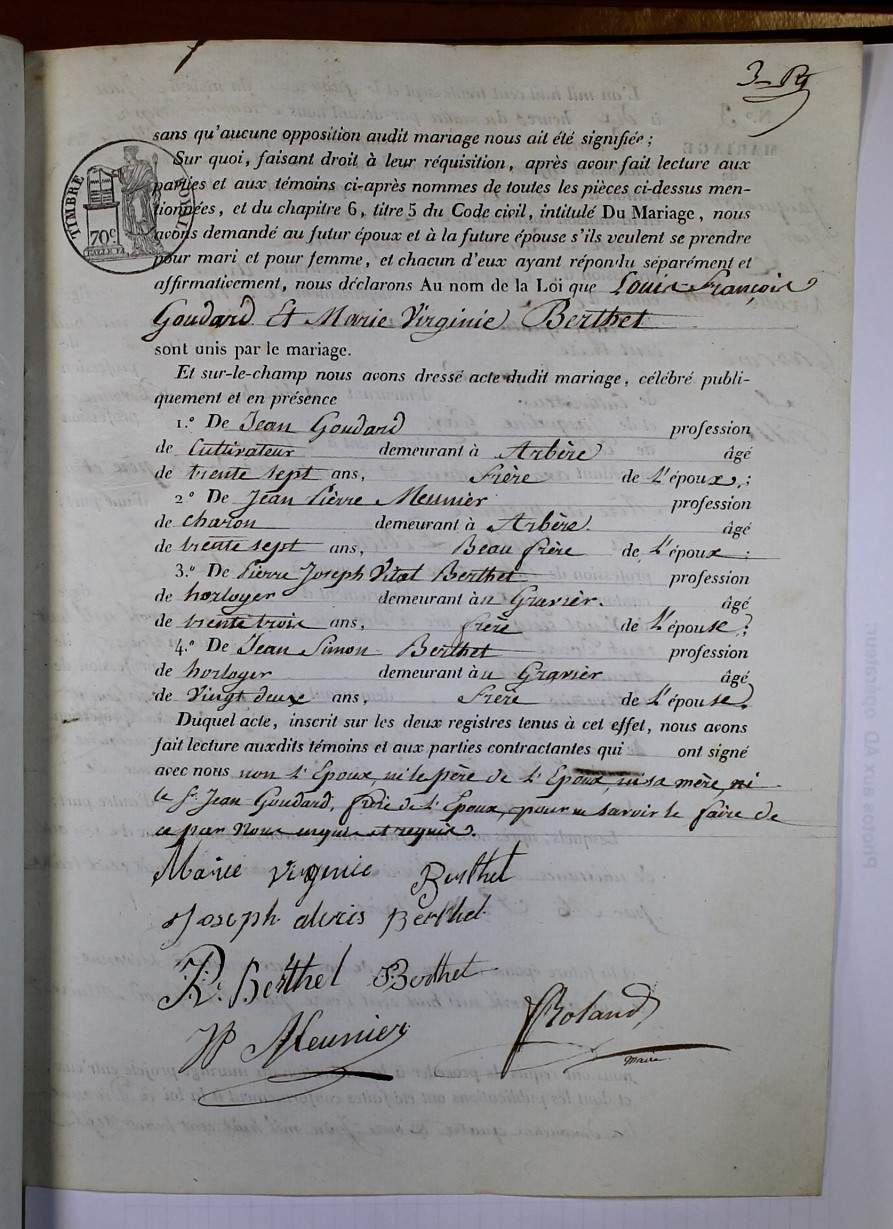 3
TIMBRE ROYAL
70c
sans qu'aucune opposition audit mariage nous ait été signifiée ;
Sur quoi, faisant droit à leur réquisition, après avoir fait lecture aux
parties et aux témoins ci-après nommes de toutes les pièces ci-dessus men-
tionnées, et du chapitre 6, titre 5 du Code civil, intitulé Du Mariage, nous
avons demandé au futur époux et à la future épouse s'ils veulent se prendre
pour mari et pour femme, et chacun d'eux ayant répondu séparément et
affirmativement, nous déclarons Au nom de la Loi que Louis François
Goudard Et Marie Virginie Berthet
sont unis par le mariage.
Et sur-le-champ nous avons dressé acte dudit mariage, célébré publi-
quement et en présence
1.° De Jean Goudard profession
de Cultivateur demeurant à Arbère âgé
de trente sept ans, Frère de L'époux ;
2° De Jean Pierre Meunier profession
de charon demeurant à Arbère. âgé
de trente sept ans, Beau frère de L'époux ;
3.° De Pierre Joseph Vital Berthet profession
de horloger demeurant àu Gravier. âgé
de trente trois ans, frère de L'épouse ;
4.° De Jean Simon Berthet profession
de horloger demeurant àu Gravier âgé
de Vingt deux ans, Frère de L'épouse.
Duquel acte, inscrit sur les deux registres tenus à cet effet, nous avons
fait lecture auxdits témoins et aux parties contractantes qui ont signé
avec nous non L'Epoux, ni le père de L'Epoux, ni sa mère, ni
le Sr. Jean Goudard, frère de L'Epoux, pour ne savoir le faire de
ce par Nous enquis et requis.
Marie Virginie Berthet
Joseph alexis Berthet
Berthet Berthet
JP Meunier
Roland
Maire
Photos aux AD opérateur: